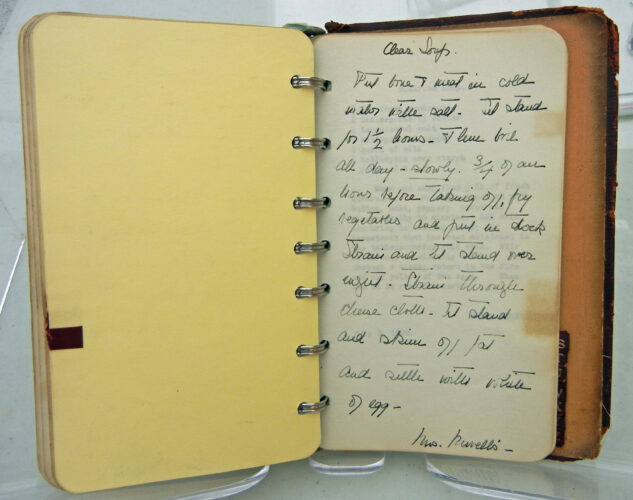 Clear Soup.
Put bone & meat in cold
water with salt. Let stand
for 1½ hours - Then boil
all day - slowly. ¾ of an
hour before taking off, fry
vegetables and put in stock
Strain and let stand over
night. Strain through
cheese cloth. Let stand
and skim off fat
and settle with white
of egg -
Mrs.